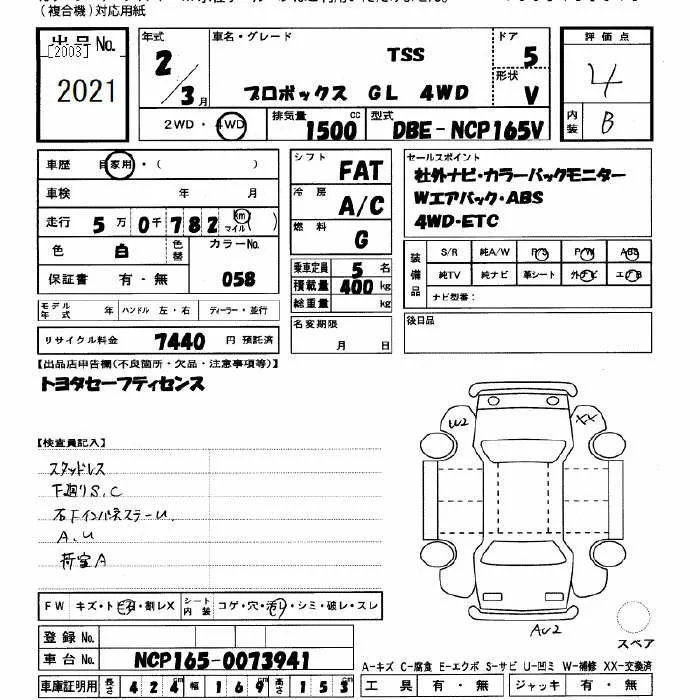 (複合機)対応用紙
出品No.
[2003]
2021
年式
2/3月
車名・グレード
TSS
プロボックス GL 4WD
ドア
5
形状
V
2WD・4WD
排気量
1500 cc
型式
DBE-NCP165V
評価点
4
内装
B
車歴 自家用・( )
車検 年 月
走行 5万0千782 km マイル( )
色 白 色替 カラーNo. 058
保証書 有・無
モデル年式 年 ハンドル 左・右 ディーラー・並行
リサイクル料金 7440 円 預託済
シフト FAT
冷房 A/C
燃料 G
乗車定員 5 名
積載量 400 kg
総重量 kg
名変期限
月 日
セールスポイント
社外ナビ・カラーバックモニター
Wエアバック・ABS
4WD・ETC
装備品
S/R 純A/W P/S P/W ABS
純TV 純ナビ 革シート 外ナビ エアB
ナビ型番:
後日品
【出品店申告欄(不良箇所・欠品・注意事項等)】
トヨタセーフティセンス
【検査員記入】
スタッドレス
下廻りS.C
右Fインパネステー U.
A.U
荷室A
W2
XX
AU2
スペア
FW キズ・トビ石・割レX シート内装 コゲ・穴・汚レ・シミ・破レ・スレ
登録No.
車台No. NCP165-0073941
車庫証明用 長さ 424 cm 幅 169 cm 高さ 153 cm
A-キズ C-腐食 E-エクボ S-サビ U-凹ミ W-補修 XX-交換済
工具 有・無 ジャッキ 有・無